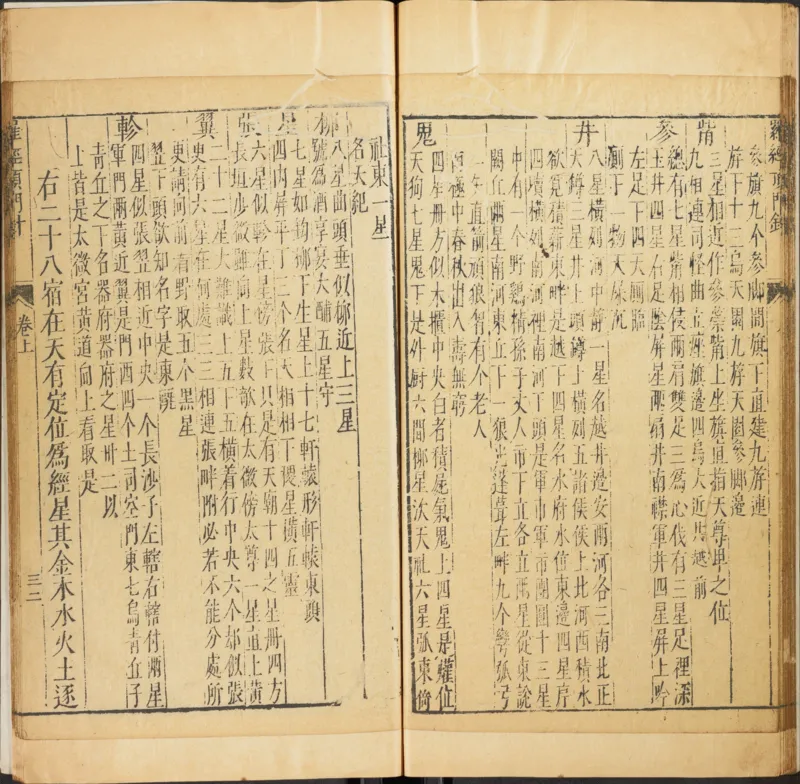 羅經頂門針
參旗九个參脚間旗下直建九斿連
斿下十三烏天園九斿天園參脚邊
觜
三星相近作參蘂觜上坐旗直指天尊卑之位
九相連司怪曲立座旗邊四鴉大近井鉞前
參
總有七星觜相侵兩肩雙足三為心伐有三星足裡深
玉井四星右足陰屏星兩扇井南襟軍井四星屏上吟
左足下四天厠臨
厠下一物天屎沉
井
八星橫列河中靜一星名越井邊安兩河各三南北正
天罇三星井上頭罇上橫列五諸侯侯上北河西積水
欲覓積薪東畔是越下四星名水府水位東邊四星序
四瀆橫列南河裡南河下頭是軍市軍市團圓十三星
中有一个野鷄精孫子丈人市下立各立兩星從東說
闕丘兩星南河東丘下一狼光蓬葺左畔九个彎弧弓
一矢直箭頑狼智有个老人
南極中春秋出入壽無窮
鬼
四星冊方似木櫃中央白者積屍氣鬼上四星是爟位
天狗七星鬼下是外厨六間柳星次天社六星弧東倚
社東一星
名天紀
柳
八星曲頭垂似柳近上三星
號為酒享宴大酺五星守
星
七星如鈎柳下生星上十七軒轅形軒轅東頭
四內屏平下三个名天相相下稷星橫五靈
張
六星似軫在星傍張下只是有天廟十四之星冊四方
長垣少微雖向上星數欹在太微傍太尊一星直上黃
翼
二十二星大難識上五下五橫着行中央六个都似張
更有六星在何處三三相連張畔附必若不能分處所
更請向前看野取五个黑星
翌下頭欲知名字是東甌
軫
四星似張翌相近中央一个長沙子左轄右轄付兩星
軍門兩黃近翼是門西四个土司空門東七烏青丘子
青丘之下名器府器府之星卅二以
上昔是太微宮黃道向上看取是
右二十八宿在天有定位為經星其金木水火土逐
羅經頂門針
卷上
三二